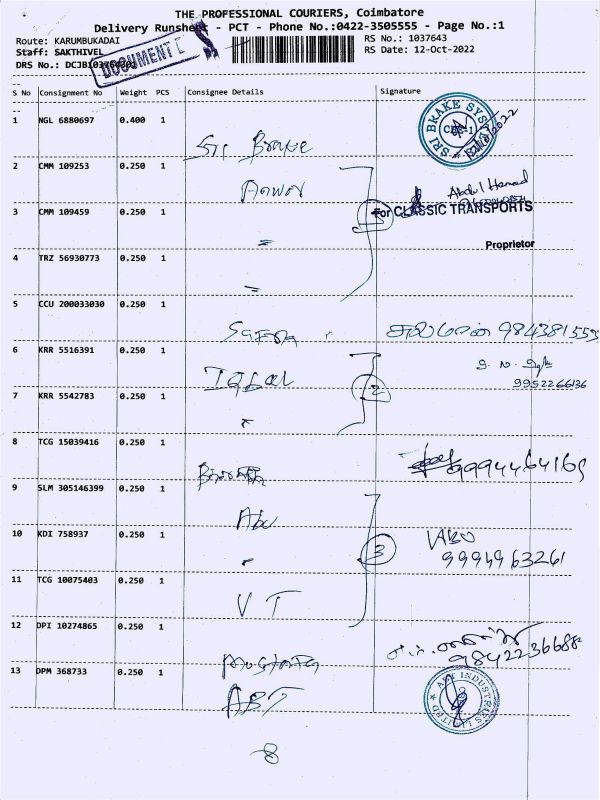 THE PROFESSIONAL COURIERS, Coimbatore
Delivery Runsheet - PCT - Phone No.:0422-3505555 - Page No.:1
Route: KARUMBUKADAI
RS No.: 1037643
Staff: SAKTHIVEL
RS Date: 12-Oct-2022
DRS No.:
DOCUMENT
S No Consignment No Weight PCS Consignee Details Signature
1 NGL 6880697 0.400 1
Sri Brake
SRI BRAKE
2 CMM 109253 0.250 1
Anwar
Abdul Hamad
3 CMM 109459 0.250 1
For CLASSIC TRANSPORTS
=
Proprietor
4 TRZ 56930773 0.250 1
=
5 CCU 200033030 0.250 1
6 KRR 5516391 0.250 1
Iqbal
2
9952266136
7 KRR 5542783 0.250 1
"
8 TCG 15039416 0.250 1
9994464165
9 SLM 305146399 0.250 1
Abu
10 KDI 758937 0.250 1
"
3
ABU
9994963261
11 TCG 10075403 0.250 1
V T
12 DPI 10274865 0.250 1
9842236688
13 DPM 368733 0.250 1
ABT
INDUSTRIES LIMITED
8